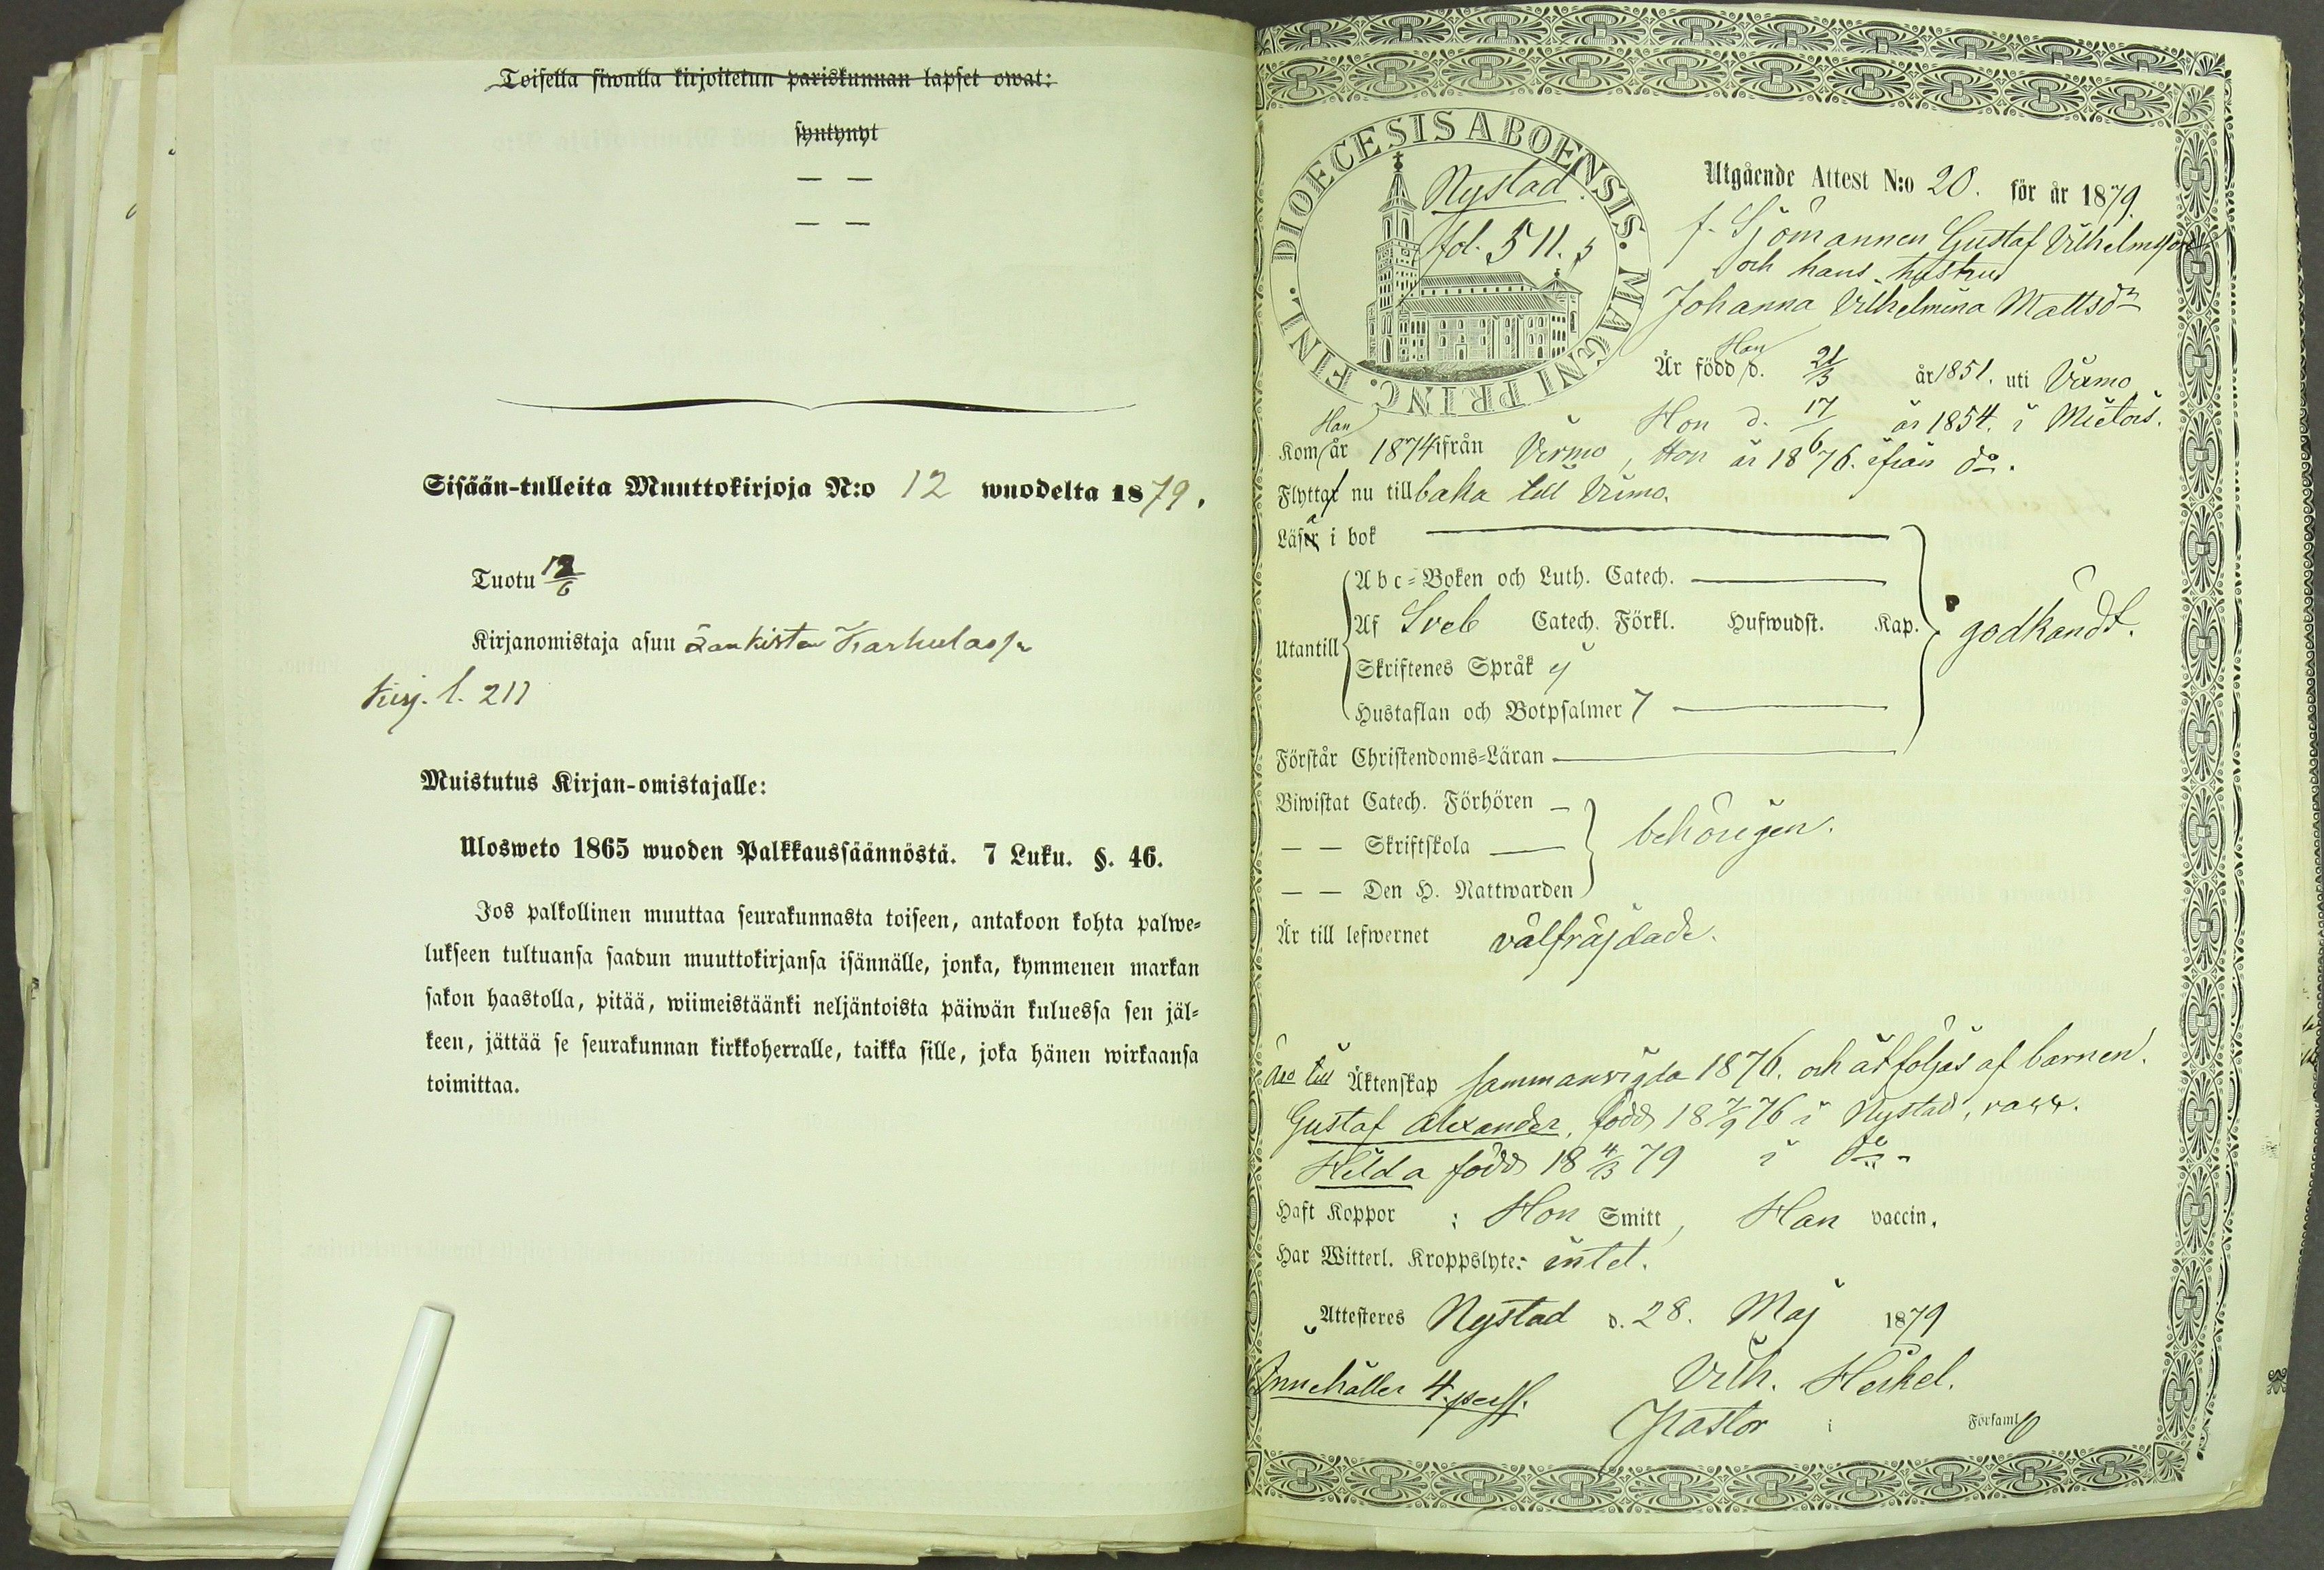 Toisella siwulla kirjoitetun pariskunnan lapset owat:
syntynyt
— —
— —
Sisään-tulleita Muuttokirjoja N:o 12 wuodelta 1879.
Tuotu 12/6
Kirjanomistaja asuu Karhulassa
Kirj. l. 211
Muistutus Kirjan-omistajalle:
Ulosweto 1865 wuoden Palkkaussäännöstä. 7 Luku. §. 46.
Jos palkollinen muuttaa seurakunnasta toiseen, antakoon kohta palwe-
lukseen tultuansa saadun muuttokirjansa isännälle, jonka, kymmenen markan
sakon haastolla, pitää, wiimeistäänki neljäntoista päiwän kuluessa sen jäl-
keen, jättää se seurakunnan kirkkoherralle, taikka sille, joka hänen wirkaansa
toimittaa.
DIOECESIS ABOENSIS. MAGNI PRINC. FINL.
Nystad
fol. 511.
Utgående Attest N:o 20. för år 1879.
f. Sjömannen Gustaf Vilhelmsson
och hans hustru
Johanna Vilhelmina Mattsdr
Är född Han d. 21/3 år 1851. uti Virmo
Hon d. 17/6 år 1854. i Mietois.
Kom Han år 1874 ifrån Virmo, Hon år 1876. ifrån do.
Flytta nu tillbaka till Virmo.
Läsa i bok
Utantill
Abc-Boken och Luth. Catech.
Af Sveb Catech. Förkl. Hufwudst. Kap.
Skriftenes Språk ej
Hustaflan och Botpsalmer 7
godkändt.
Förstår Christendoms-Läran
Biwistat Catech. Förhören —
— — Skriftskola —
— — Den H. Nattwarden
behörigen.
Är till lefwernet välfräjdade.
Äktenskap sammanvigda 1876. och åtföljas af barnen.
Gustaf Alexander, född 18 7/9 76 i Nystad, vacc.
Hilda född 18 4/3 79 i do
Haft Koppor : Hon Smitt, Han vaccin.
Har Witterl. Kroppslyte: intet.
Attesteres Nystad d. 28. Maj 1879
Innehåller 4. pers.
Vilh. Heikel.
Pastor i Församl